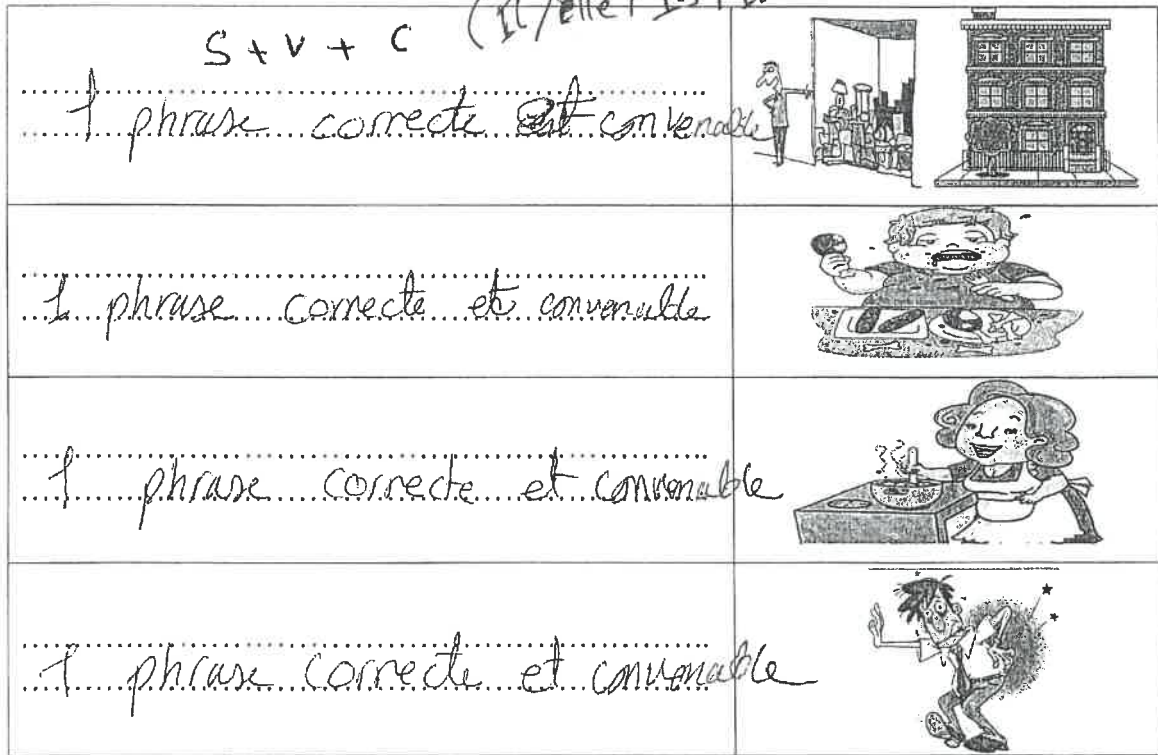 (Il / elle /
S + V + C
1 phrase correcte et convenable
1 phrase correcte et convenable
1 phrase correcte et convenable
1 phrase correcte et convenable